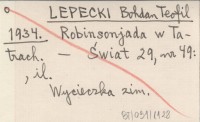 LEPECKI Bohdan Teofil
1934. Robinsonjada w Ta-
trach. — Świat 29, na 49:
, il.
Wycieczka zim.
BJ/091/1928